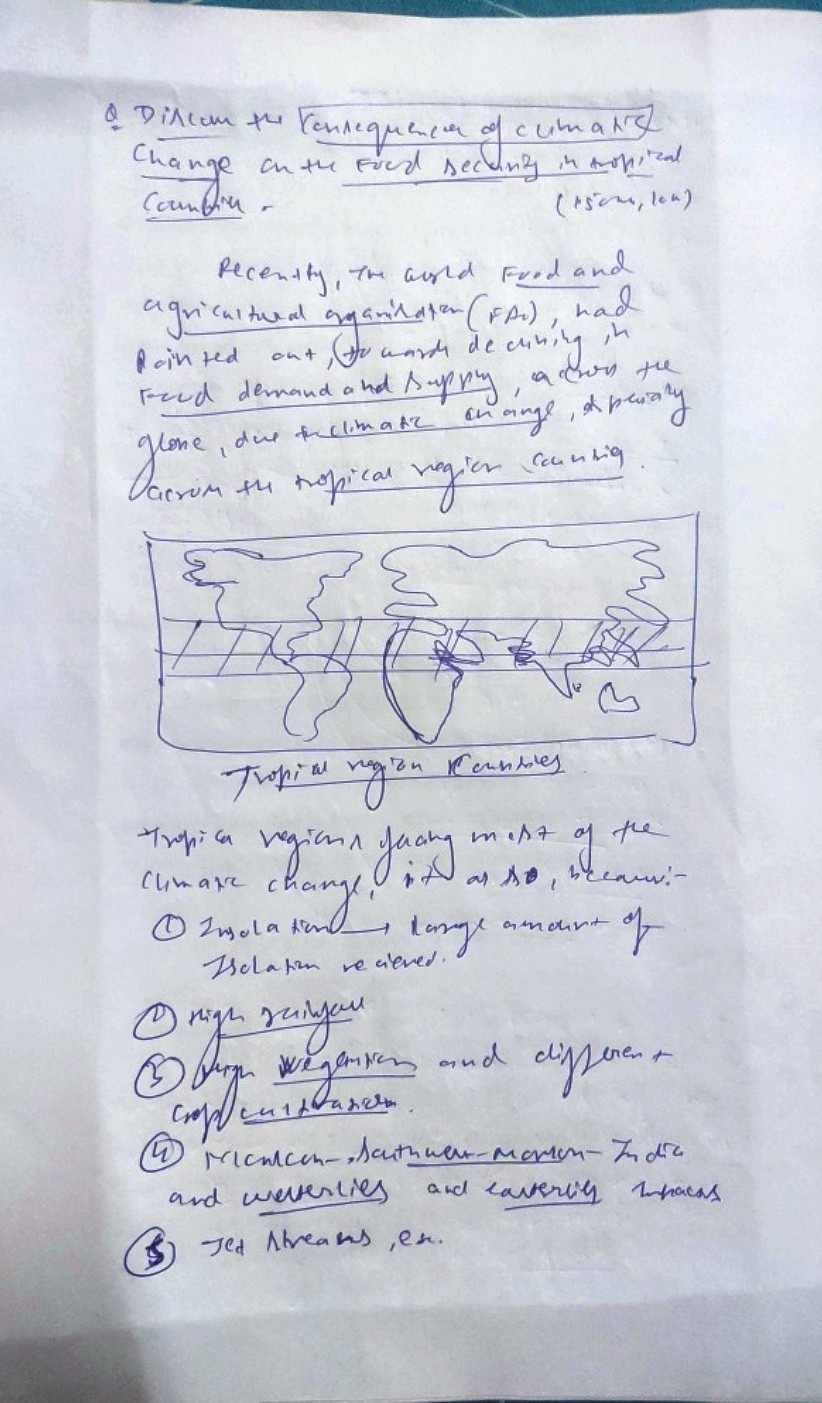 Q Discuss the Consequences of climatic
Change on the Food security in tropical
Countries.
(150w, 10m)
Recently, the world Food and
agricultural organisation (FAO), had
pointed out, towards declining in
Food demand and supply, across the
globe, due to climatic change, specially
across the tropical region country.
Tropical region Countries
Tropica regions facing most of the
Climatic change, it as so, because:-
① Insolation → large amount of
Isolation recieved.
High rainfall
③ High vegetation and different
Crop cultivation.
④ Monsoon - Southwest-monsoon - India
and westerlies and easterlies impacts
⑤ Jet streams, etc.